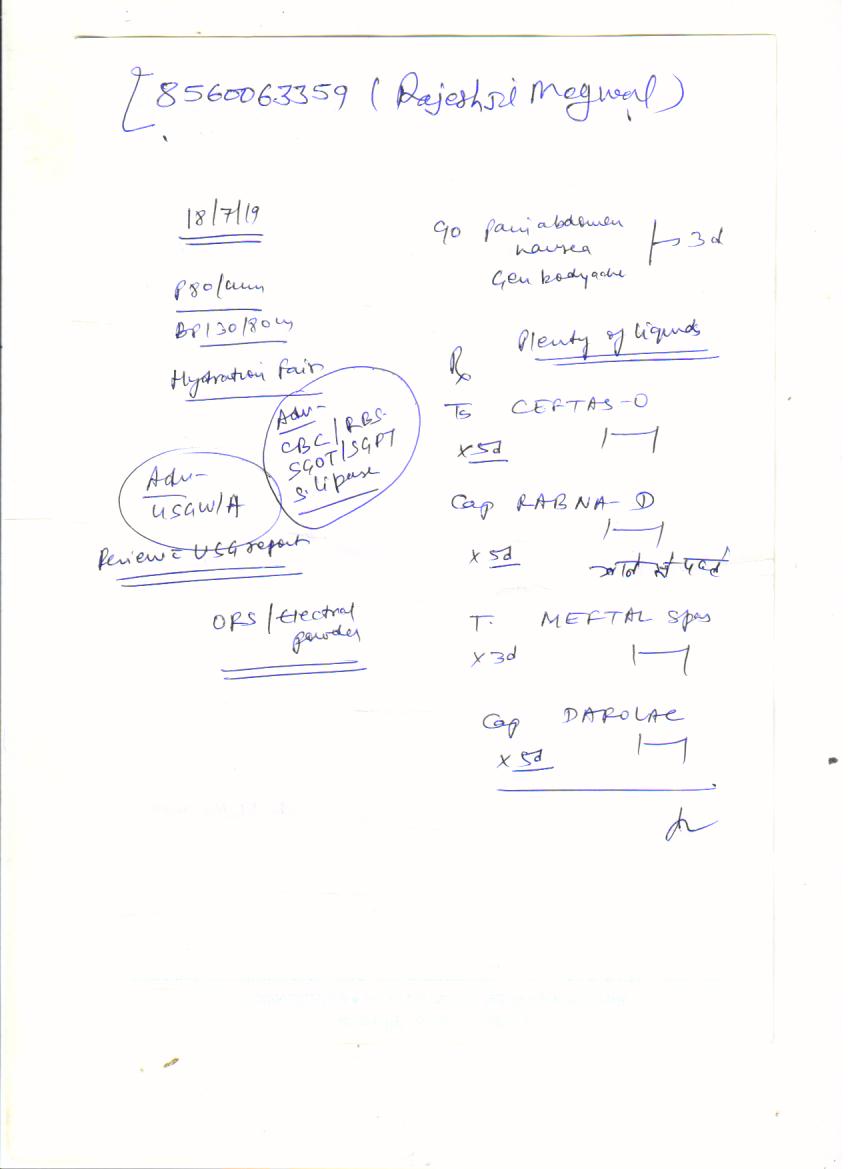 8560063359 (Rajeshri Megwal)
18/7/19
P 80/min
BP 130/80
Hydration fair
Adv-
CBC/RBS
SGOT/SGPT
S. lipase
Adv-
USG W/A
Review c USG report
ORS/Electral
powder
C/o pain abdomen
nausea
Gen bodyache
3d
Plenty of liquids
Rx
CEFTAS-O
1—1
x 5d
Cap RABNA-D
1—1
x 5d
खाने से पहले
T. MEFTAL Spas
x 3d 1—1
Cap DAROLAC
1—1
x 5d